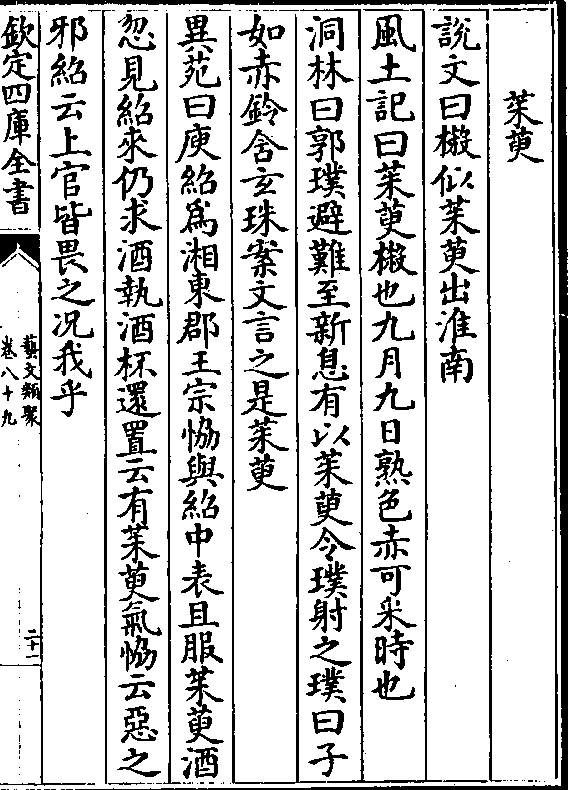 茱萸
說文曰樧似茱萸出淮南
風土記曰茱萸樧也九月九日熟色赤可采時也
洞林曰郭璞避難至新息有以茱萸令璞射之璞曰子
如赤鈴含玄珠案文言之是茱萸
異苑曰庾紹為湘東郡王宗恊與紹中表且服茱萸酒
忽見紹來仍求酒執酒杯還置云有茱萸氣恊云惡之
邪紹云上官皆畏之況我乎
欽定四庫全書
藝文類聚
卷八十九
二十一